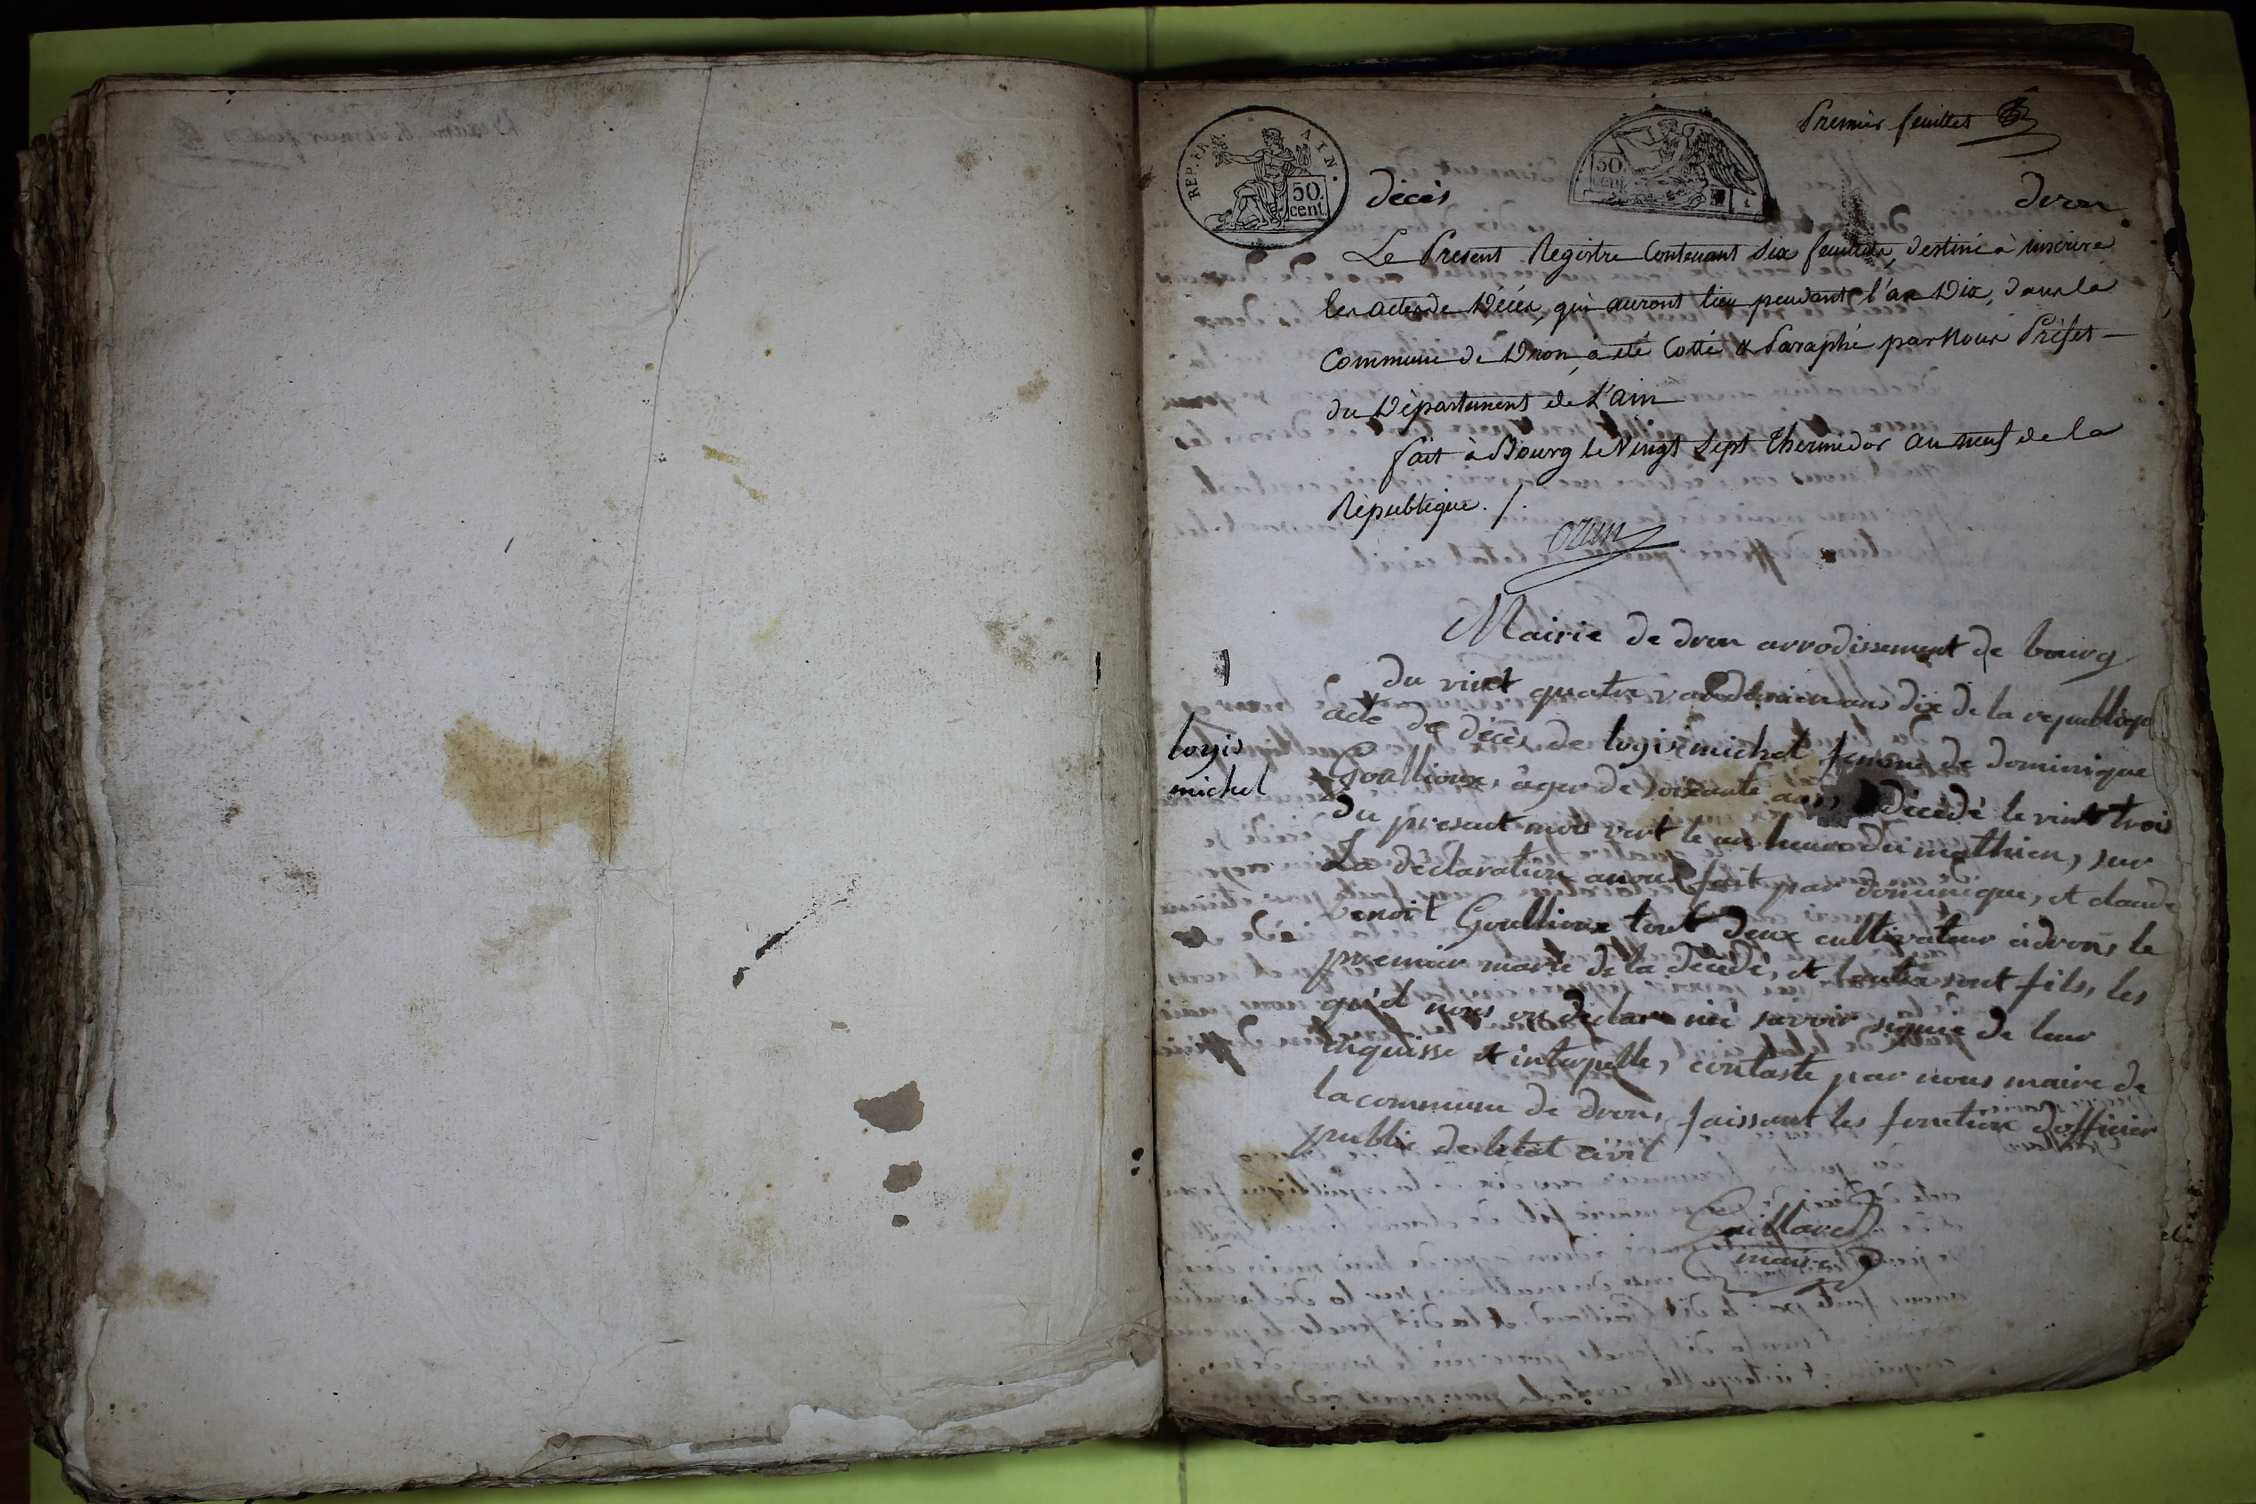 Premier feuillet
REP. FRA
AIN.
50 cent
50 cent
décès
dron
Le Present Registre Contenant six feuillets, destiné à inscrire
les actes de Décès, qui auront lieu pendant l'an Dix, dans la
Commune de Dron, a été Cotté & Paraphé par Nous Préfet
du Département de L'ain
fait à Bourg le Vingt Sept Thermidor an neuf de la
République ./.
ozun
Mairie de dron arrodissement de bourg
du vint quatre vandémier ans dix de la republique
acte de décès de logis michel femme de dominique
Goullioux, âger de soixante ans, décédé le vint trois
du present mois vert le un heure du mathien, sur
La déclaration anous fait par dominique, et claude
benoit Goullioux tout deux cultivateur adrons le
premier marie de la décédé, et lautre sont fils, les
qu'el nous on declare nié savoir signié de leur
enquisse et interpelle, contaste par nous maire de
la commune de dron, faissant les fonction dofficier
public de letat civil
logis
michel
Gaillard
maire